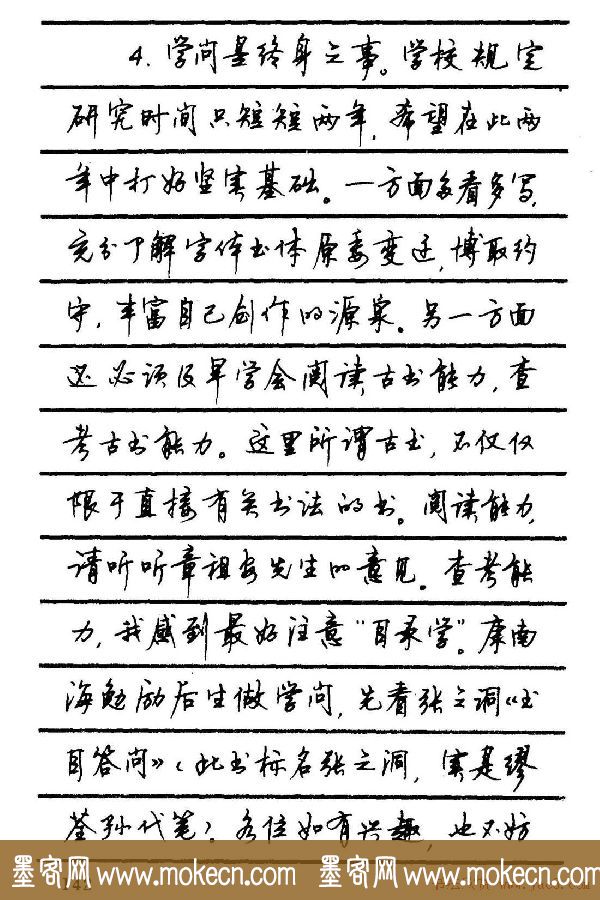 4. 学问是终身之事。学校规定
研究时间只短短两年，希望在此两
年中打好坚实基础。一方面多看多写，
充分了解字体书体原委变迁，博取约
守，丰富自己创作的源泉。另一方面
还必须及早学会阅读古书能力，查
考古书能力。这里所谓古书，不仅仅
限于直接有关书法的书。阅读能力，
请听听章祖安先生的意见。查考能
力，我感到最好注意“目录学”。康南
海勉励后生做学问，先看张之洞《书
目答问》（此书标名张之洞，实是缪
荃孙代笔）。各位如有兴趣，也不妨
墨客网 www.mokecn.com 墨客网 www.mokecn.com